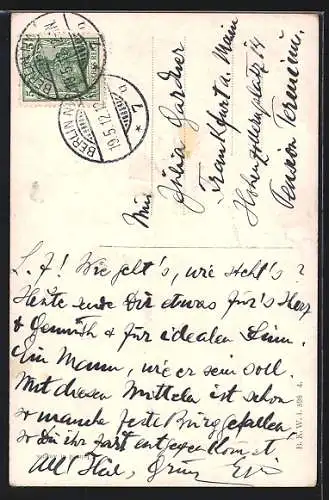 BERLIN
19.5.12.
7
Miss
Julia Gardner
Frankfurt a. Main
Hohenzollernplatz 14
Pension
L. J.! Wie geht's, wie steht's?
Heute Dir etwas für's Herz
& Gemüth & für idealen Sinn.
Ein Mann, wie er sein soll.
Mit diesen Mitteln ist schon
manche feste Burg gefallen,
Du ihr zart entgegenkommst.
All Heil,
B. K. W. I.